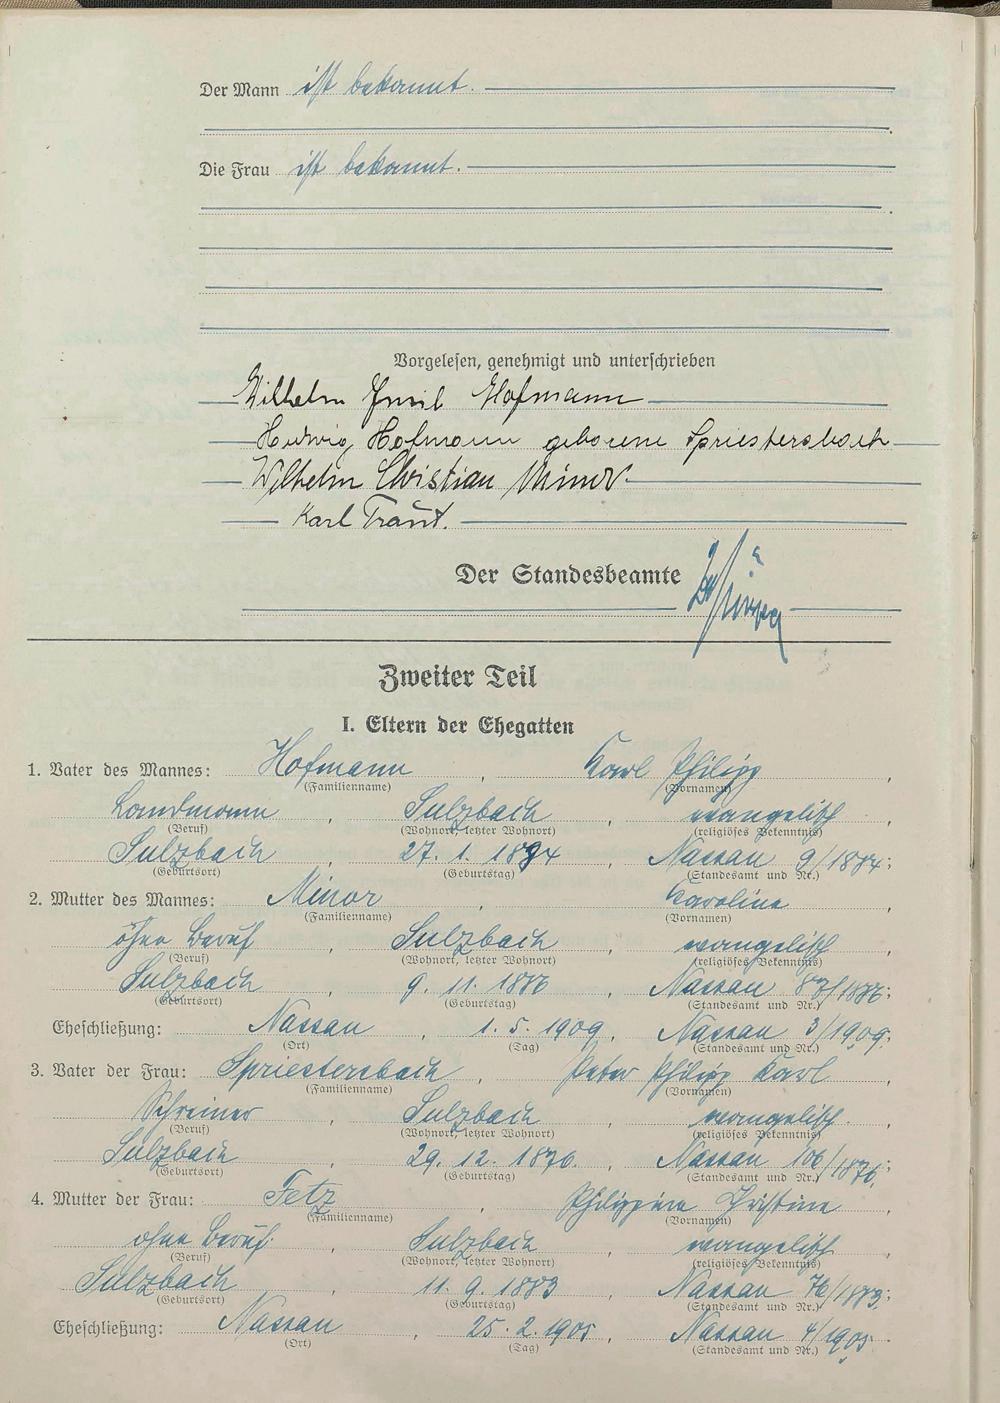 Der Mann ist bekannt.
Die Frau ist bekannt.
Vorgelesen, genehmigt und unterschrieben
Wilhelm Emil Hofmann
Hedwig Hofmann geborene Spriestersbach
Wilhelm Christian Minor
Karl Traut.
Der Standesbeamte
Zweiter Teil
I. Eltern der Ehegatten
1. Vater des Mannes: Hofmann, Karl Philipp,
(Familienname) (Vornamen)
Landmann, Sulzbach, evangelisch,
(Beruf) (Wohnort, letzter Wohnort) (religiöses Bekenntnis)
Sulzbach, 27. 1. 1884, Nassau 9/1884;
(Geburtsort) (Geburtstag) (Standesamt und Nr.)
2. Mutter des Mannes: Minor, Karoline,
(Familienname) (Vornamen)
ohne Beruf, Sulzbach, evangelisch,
(Beruf) (Wohnort, letzter Wohnort) (religiöses Bekenntnis)
Sulzbach, 9. 11. 1886, Nassau 87/1886;
(Geburtsort) (Geburtstag) (Standesamt und Nr.)
Eheschließung: Nassau, 1. 5. 1909, Nassau 3/1909;
(Ort) (Tag) (Standesamt und Nr.)
3. Vater der Frau: Spriestersbach, Peter Philipp Karl,
(Familienname) (Vornamen)
Schreiner, Sulzbach, evangelisch,
(Beruf) (Wohnort, letzter Wohnort) (religiöses Bekenntnis)
Sulzbach, 29. 12. 1876, Nassau 106/1876;
(Geburtsort) (Geburtstag) (Standesamt und Nr.)
4. Mutter der Frau: Fetz, Philippine Christine,
(Familienname) (Vornamen)
ohne Beruf, Sulzbach, evangelisch,
(Beruf) (Wohnort, letzter Wohnort) (religiöses Bekenntnis)
Sulzbach, 11. 9. 1883, Nassau 76/1883;
(Geburtsort) (Geburtstag) (Standesamt und Nr.)
Eheschließung: Nassau, 25. 2. 1905, Nassau 4/1905.
(Ort) (Tag) (Standesamt und Nr.)